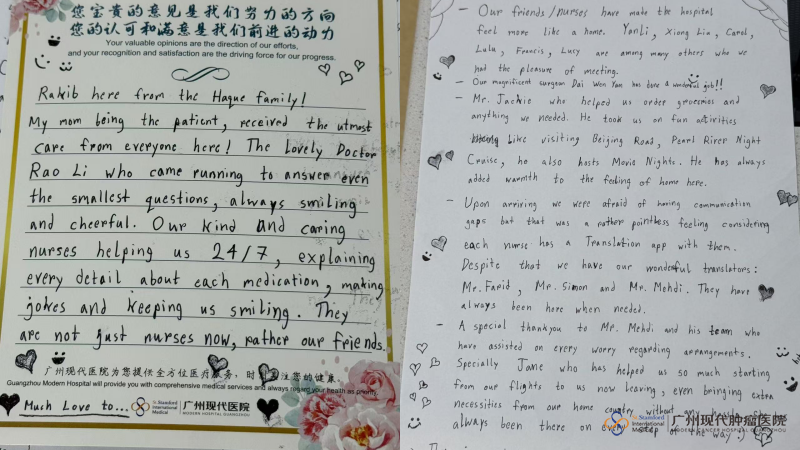 您宝贵的意见是我们努力的方向
您的认可和满意是我们前进的动力
Your valuable opinions are the direction of our efforts,
and your recognition and satisfaction are the driving force for our progress.
Rakib here from the Haque family!
My mom being the patient, received the utmost
care from everyone here! The Lovely Doctor
Rao Li who came running to answer even
the smallest questions, always smiling
and cheerful. Our kind and caring
nurses helping us 24/7, explaining
every detail about each medication, making
jokes and keeping us smiling. They
are not just nurses now, rather our friends.
广州现代医院为您提供全方位医疗服务,时 关注您的健康
Guangzhou Modern Hospital will provide you with comprehensive medical services and always regard your health as priority
Much Love to...
St.Stamford International Medical
广州现代医院
MODERN HOSPITAL GUANGZHOU
- Our friends/nurses have made the hospital
feel more like a home. YanLi, Xiong Lin, Carol,
Lulu, Francis, Lucy are among many others who we
had the pleasure of meeting.
- Our magnificent surgeon Dai Wen Yan has done a wonderful job!!
- Mr. Jackie who helped us order groceries and
anything we needed. He took us on fun activities
like visiting Beijing Road, Pearl River Night
Cruise, he also hosts Movie Nights. He has always
added warmth to the feeling of home here.
- Upon arriving we were afraid of having communication
gaps but that was a rather pointless feeling considering
each nurse has a Translation app with them.
Despite that we have our wonderful translators:
Mr. Farid, Mr. Simon and Mr. Mehdi. They have
always been here when needed.
- A special thankyou to Mr. Mehdi and his team who
have assisted on every worry regarding arrangements.
Specially Jane who has helped us so much starting
from our flights to us now leaving, even bringing extra
necessities from our home country without any
always been there on every step of the way :)
St.Stamford International Medical
广州现代肿瘤医院
MODERN CANCER HOSPITAL GUANGZHOU